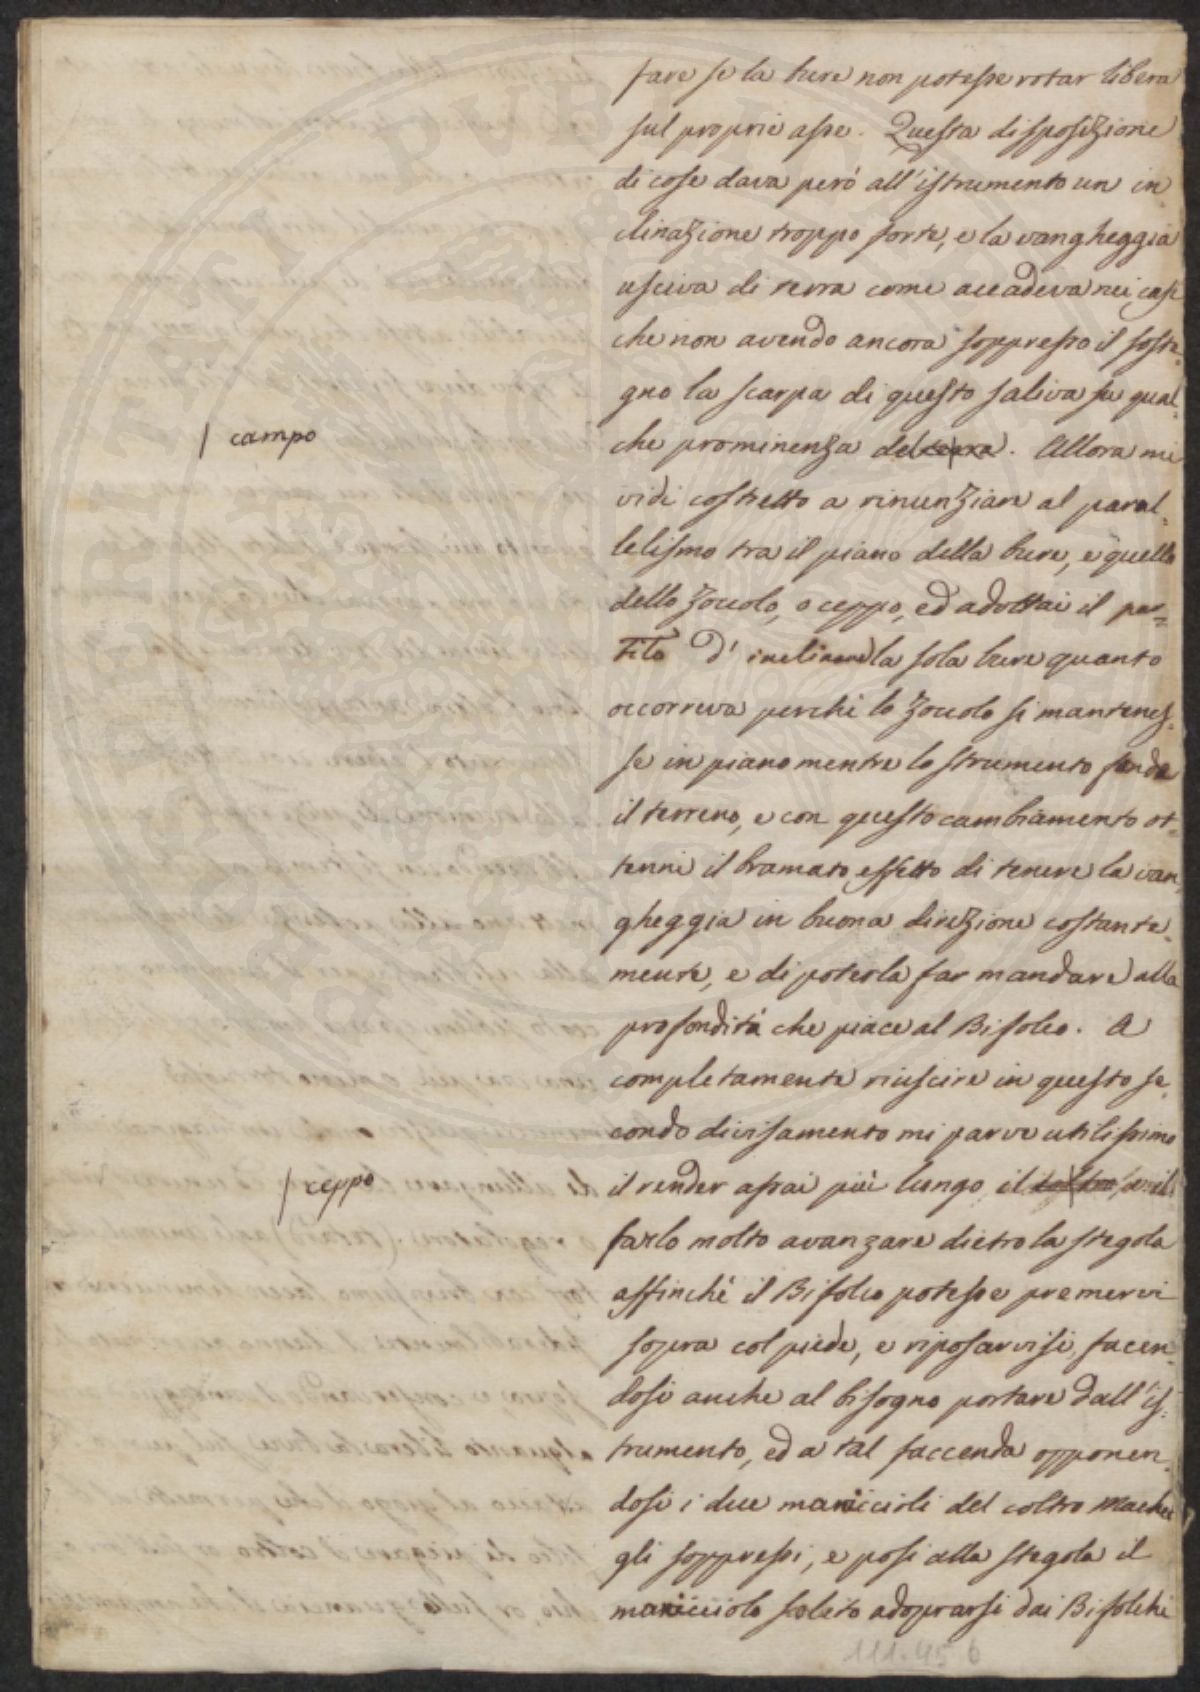 fare se la bure non potesse rotar libera
sul proprio asse. Questa disposizione
di cose dava però all'istrumento un in-
clinazione troppo forte, e la vangheggia
usciva di terra come accadeva nei casi
che non avendo ancora soppresso il soste-
gno la scarpa di questo saliva su qual-
campo
che prominenza del terra. Allora mi
vidi costretto a rinunziare al paral-
lelismo tra il piano della bure, e quello
dello zoccolo, o ceppo, ed adottai il par-
tito d'inclinare la sola bure quanto
occorreva perchè lo zoccolo si mantenes-
se in piano mentre lo strumento fende
il terreno, e con questo cambiamento ot-
tenni il bramato effetto di tenere la van-
gheggia in buona direzione costante-
mente, e di poterla far mandare alla
profondità che piace al Bifolco. A
completamente riuscire in questo se-
condo divisamento mi parve utilissimo
ceppo
il render assai più lungo il coltro, ed il
farlo molto avanzare dietro la stegola
affinchè il Bifolco potesse premervi
sopra col piede, e riposarvisi, facen-
dosi anche al bisogno portare dall'is-
trumento, ed a tal faccenda opponen-
dosi i due maniccioli del coltro Machet
gli soppressi, e posi alla stegola il
manicciolo solito adoprarsi dai Bifolchi
111.45 6